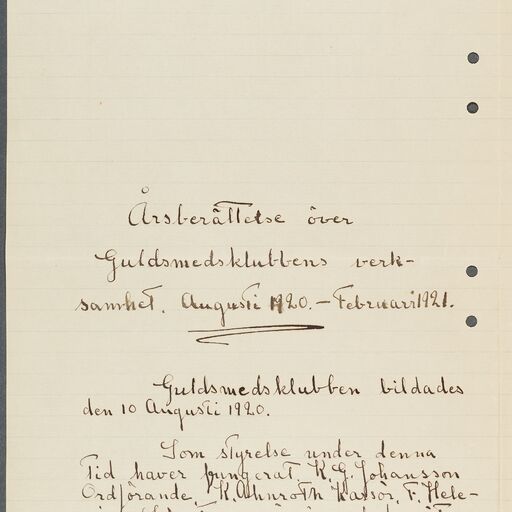 Årsberättelse över
Guldsmedsklubbens verk-
samhet. Augusti 1920. – Februari 1921.
Guldsmedsklubben bildades
den 10 Augusti 1920.
Som styrelse under denna
Tid haver fungerat K. G. Johansson
Ordförande, K. Ahnroth Kassör, F. Hele-